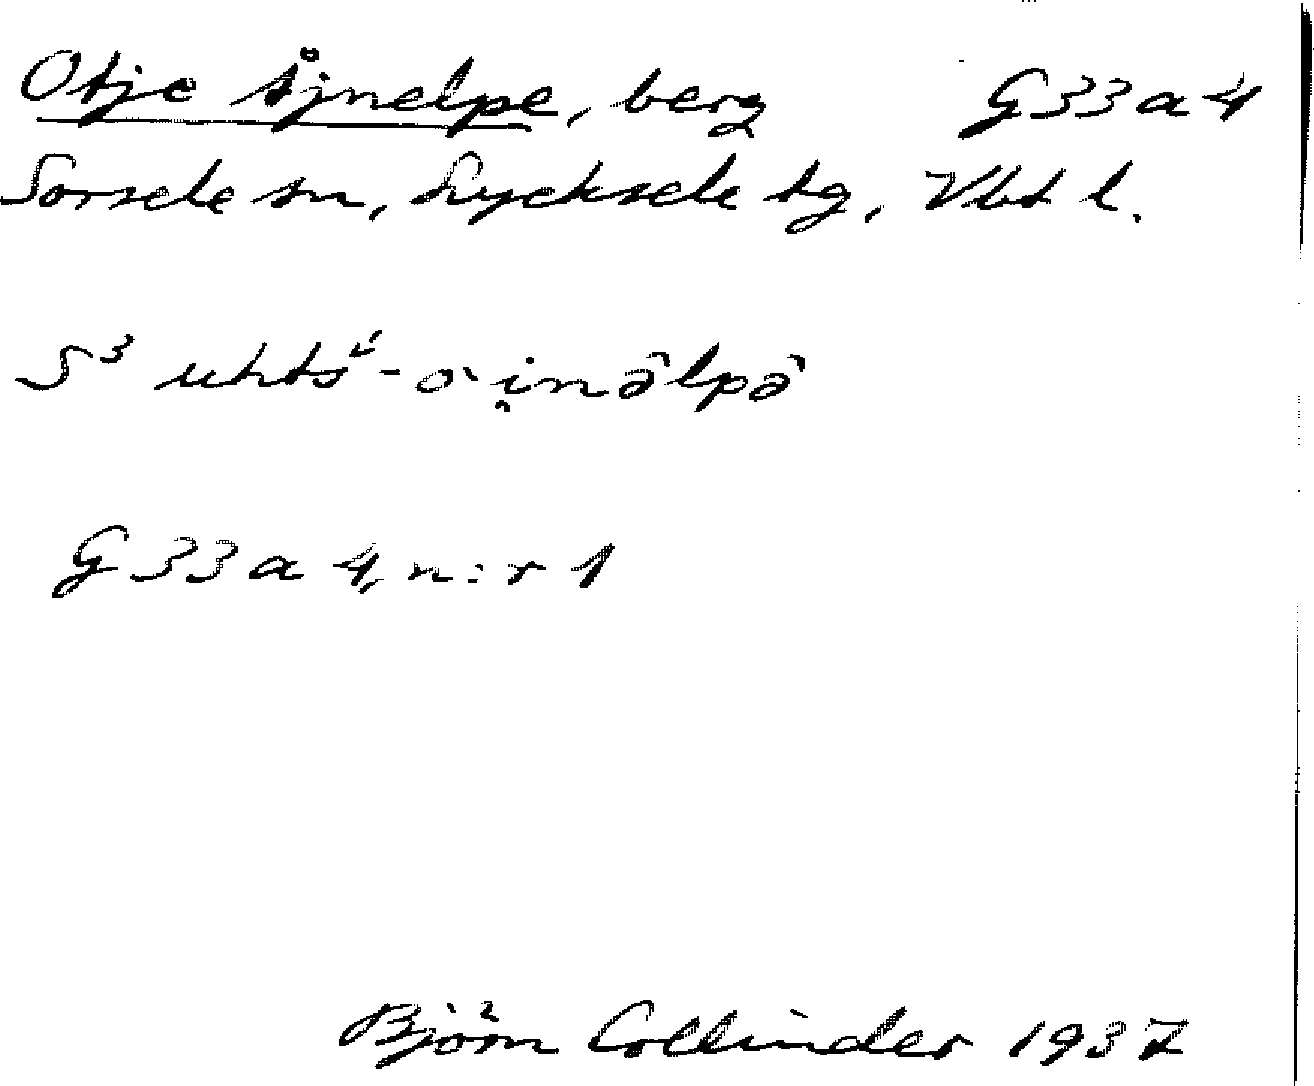 Otje Åjnelpe, berg G33a4
Sorsele sn, Lycksele tg, Vbt l.
S³ uhtsˊ-òi̭nəlpə
G33a4, n:r 1
Björn Collinder 1937